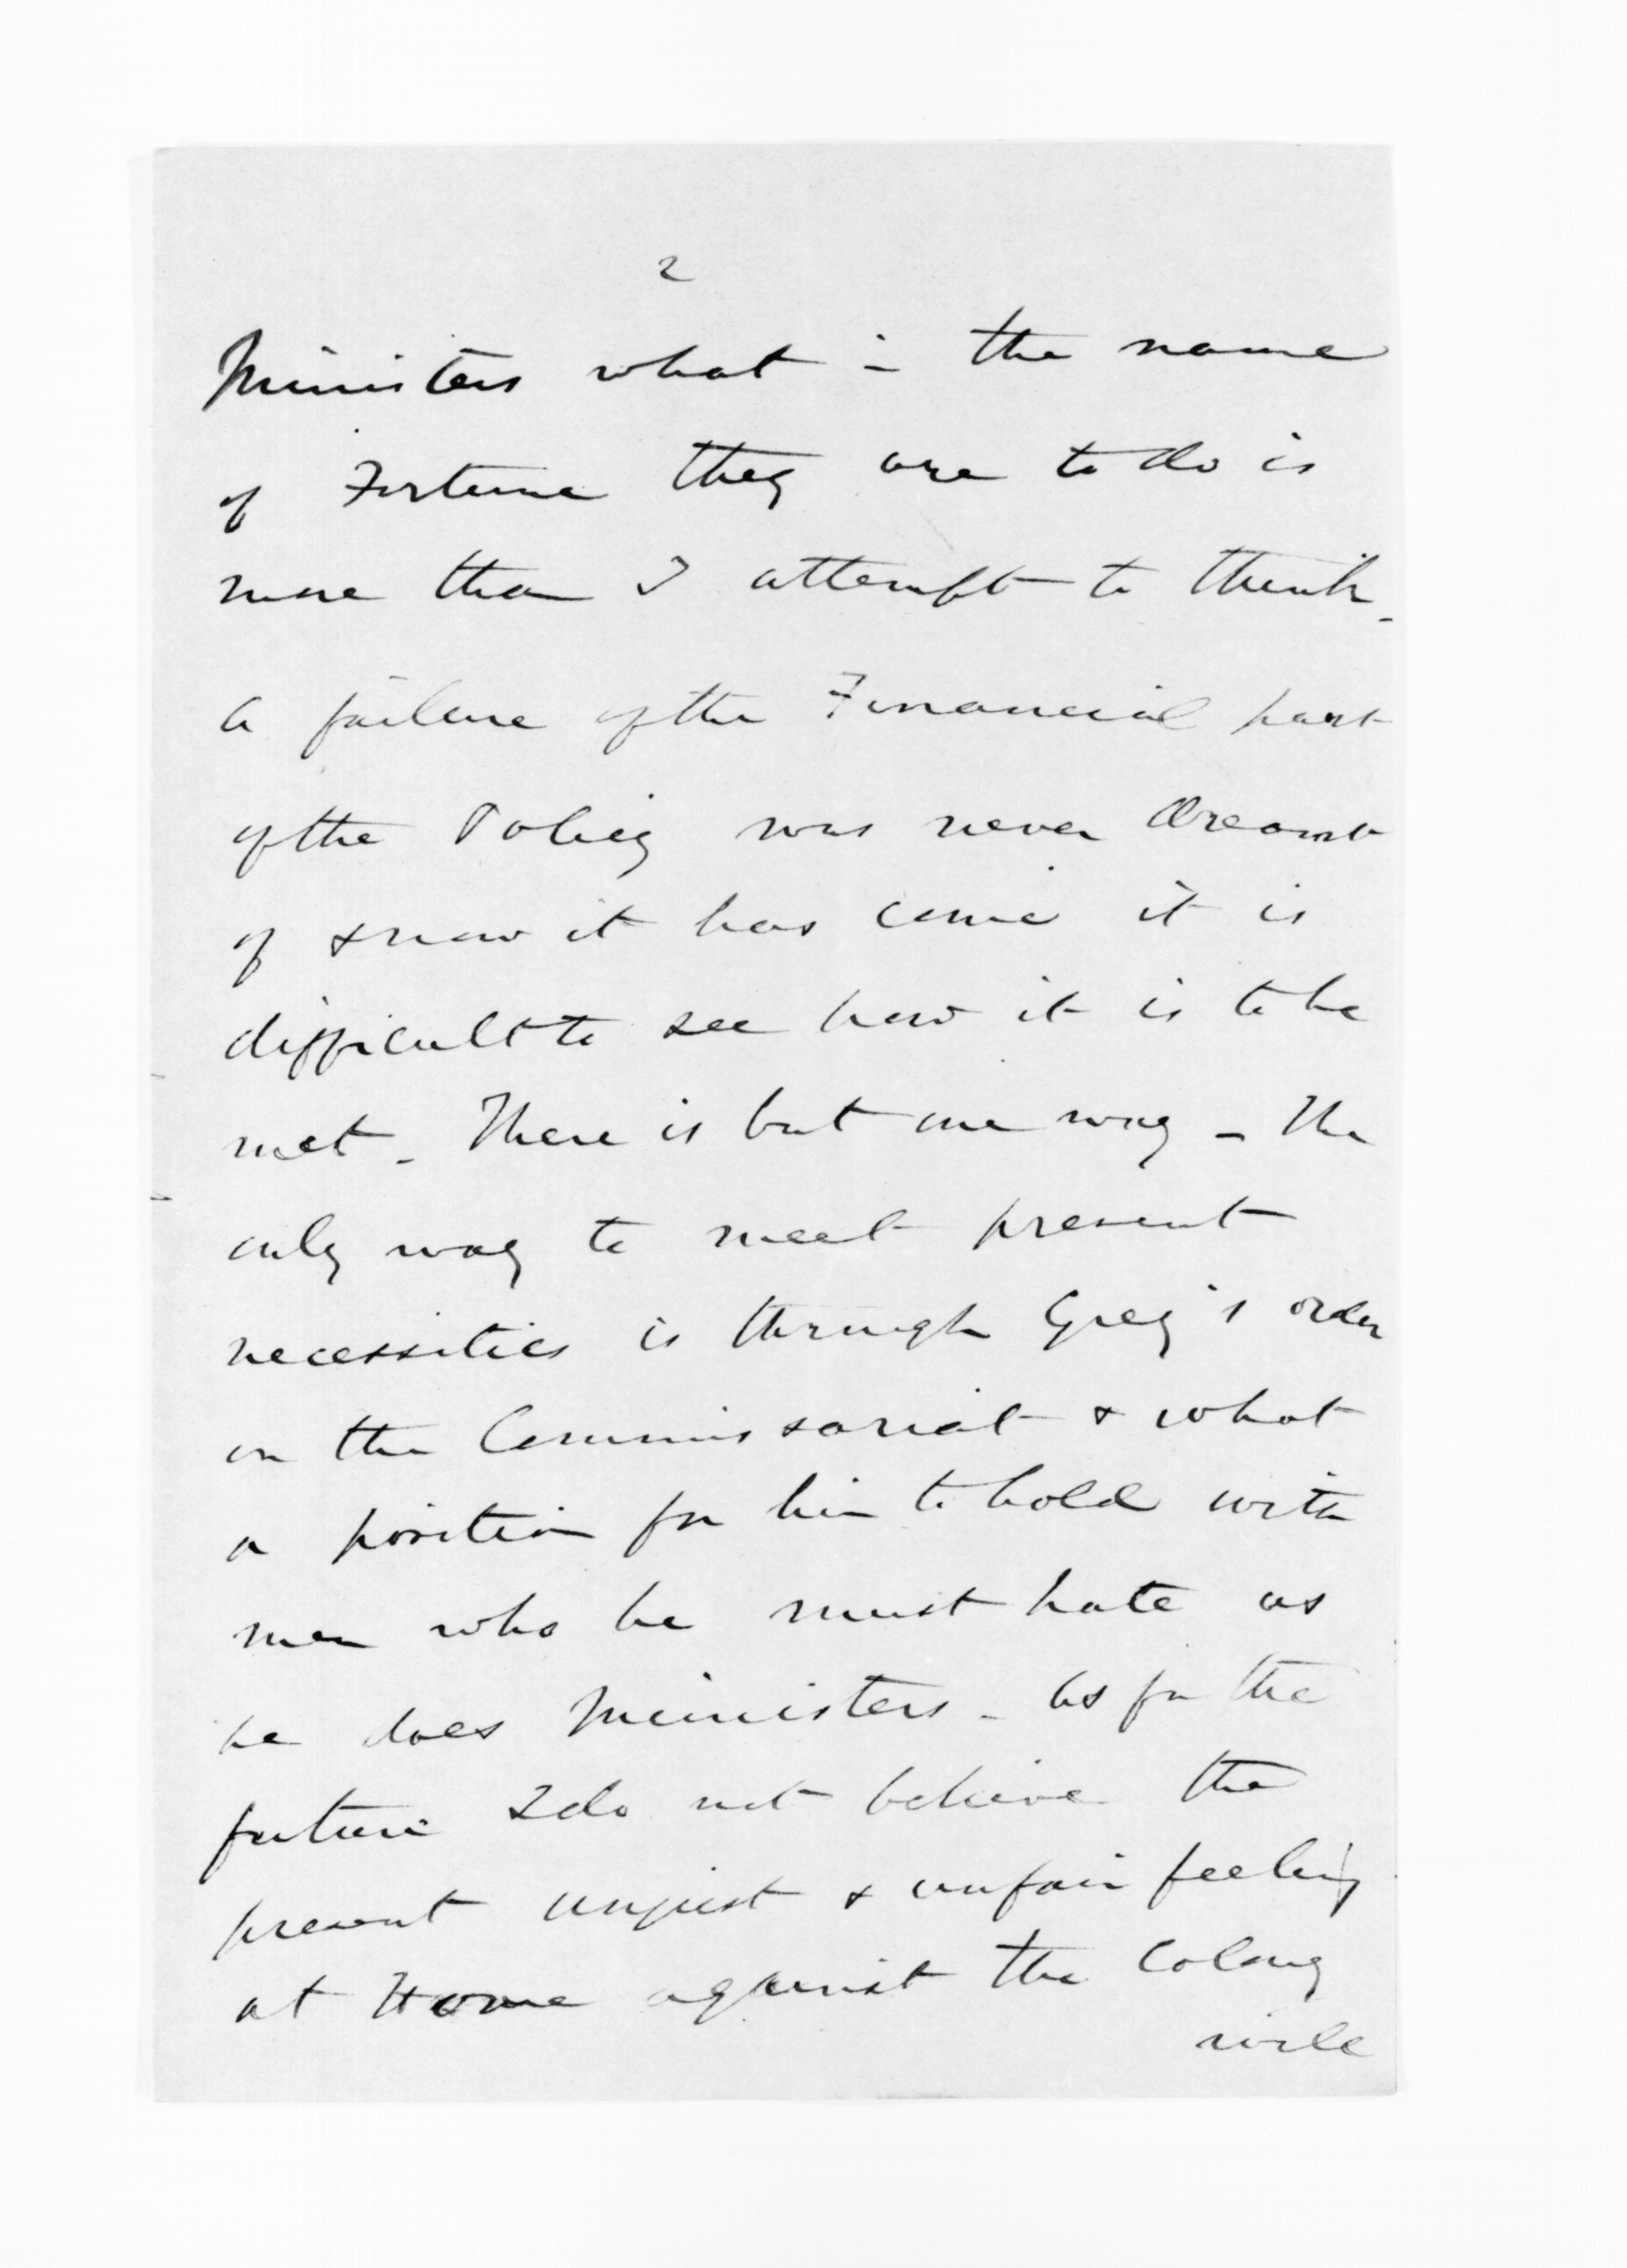 2
Ministers what in the name
of Fortune they are to do is
more than I attempt to think.
A failure of the Financial part
of the Policy was never dreamt
of & now it has come it is
difficult to see how it is to be
met. There is but one way - The
only way to meet present
necessities is through Grey's order
on the Commissariat & what
a position for him to hold with
men who he must hate as
he does Ministers. As for the
future I do not believe the
present unjust & unfair feeling
at Home against the Colony
will